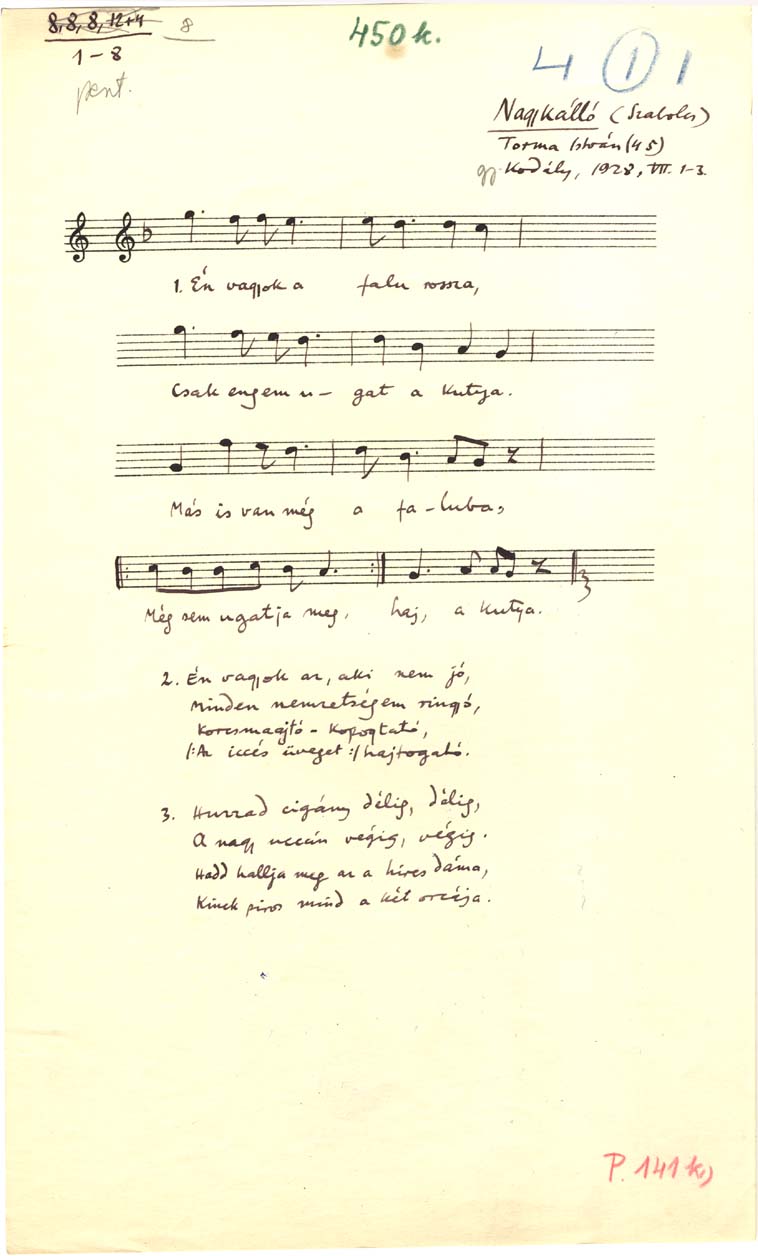 8, 8, 8, 12+4 8
1–8
pent.
450 k.
4 1 1
Nagykálló (Szabolcs)
Torma István (45)
gy. Kodály, 1928, VII. 1-3.
1. Én vagyok a falu rossza,
Csak engem u– gat a kutya.
Más is van még a fa–luba,
Még sem ugatja meg, haj, a kutya.
2. Én vagyok az, aki nem jó,
Minden nemzetségem ringyó,
Korcsmaajtó – kopogtató,
/:Az iccés üveget:/ hajtogató.
3. Huzzad cigány délig, délig,
A nagy uccán végig, végig.
Hadd hallja meg az a híres dáma,
Kinek piros mind a két orcája.
P. 141 k,